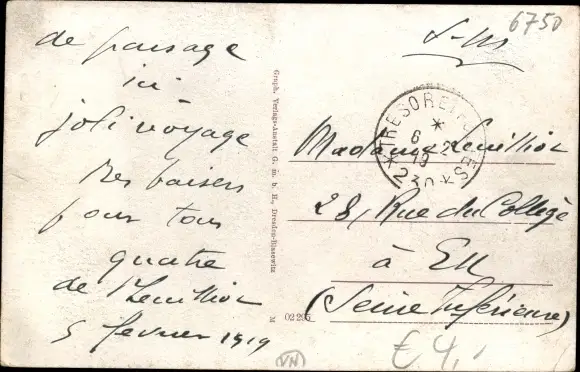 de passage
ici
joli voyage
Des baisers
pour tous
quatre
de
5 février 1919
Graph. Verlags-Anstalt G. m. b. H., Dresden-Blasewitz
M 02295
6750
TRESOR ET POSTES
*
6 - 2
19
* 230 *
Madame
28, Rue du Collège
à Eu
(Seine Inférieure)
VN
€ 4,-